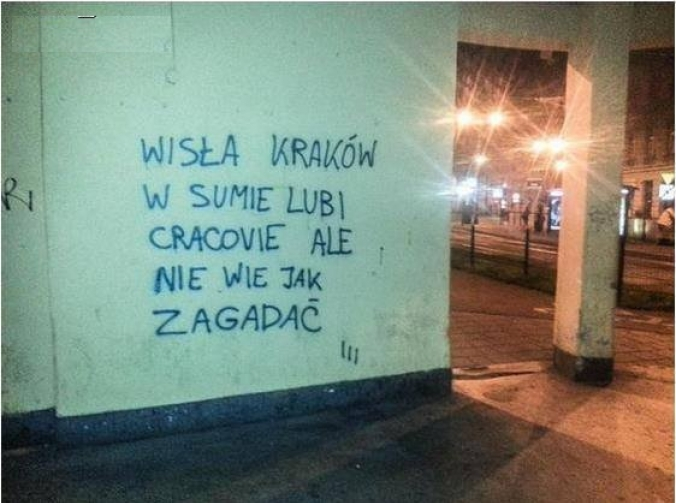 WISŁA KRAKÓW
W SUMIE LUBI
CRACOVIE ALE
NIE WIE JAK
ZAGADAĆ